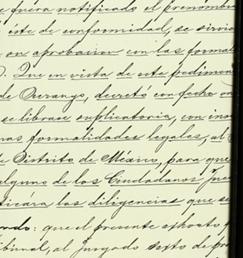 fuera notificado el prenombra
éste de conformidad, se sirvie
on aprobarían con las formal
Que en vista de este pedimen
de Durango, decretó con fecha on
se librase suplicatoria, con ins
nas formalidades legales, al
Distrito de México, para que
alguno de los Ciudadanos Jue
ticara las diligencias que se
ndo: que el presente exhorto
bunal, al Juzgado sexto de